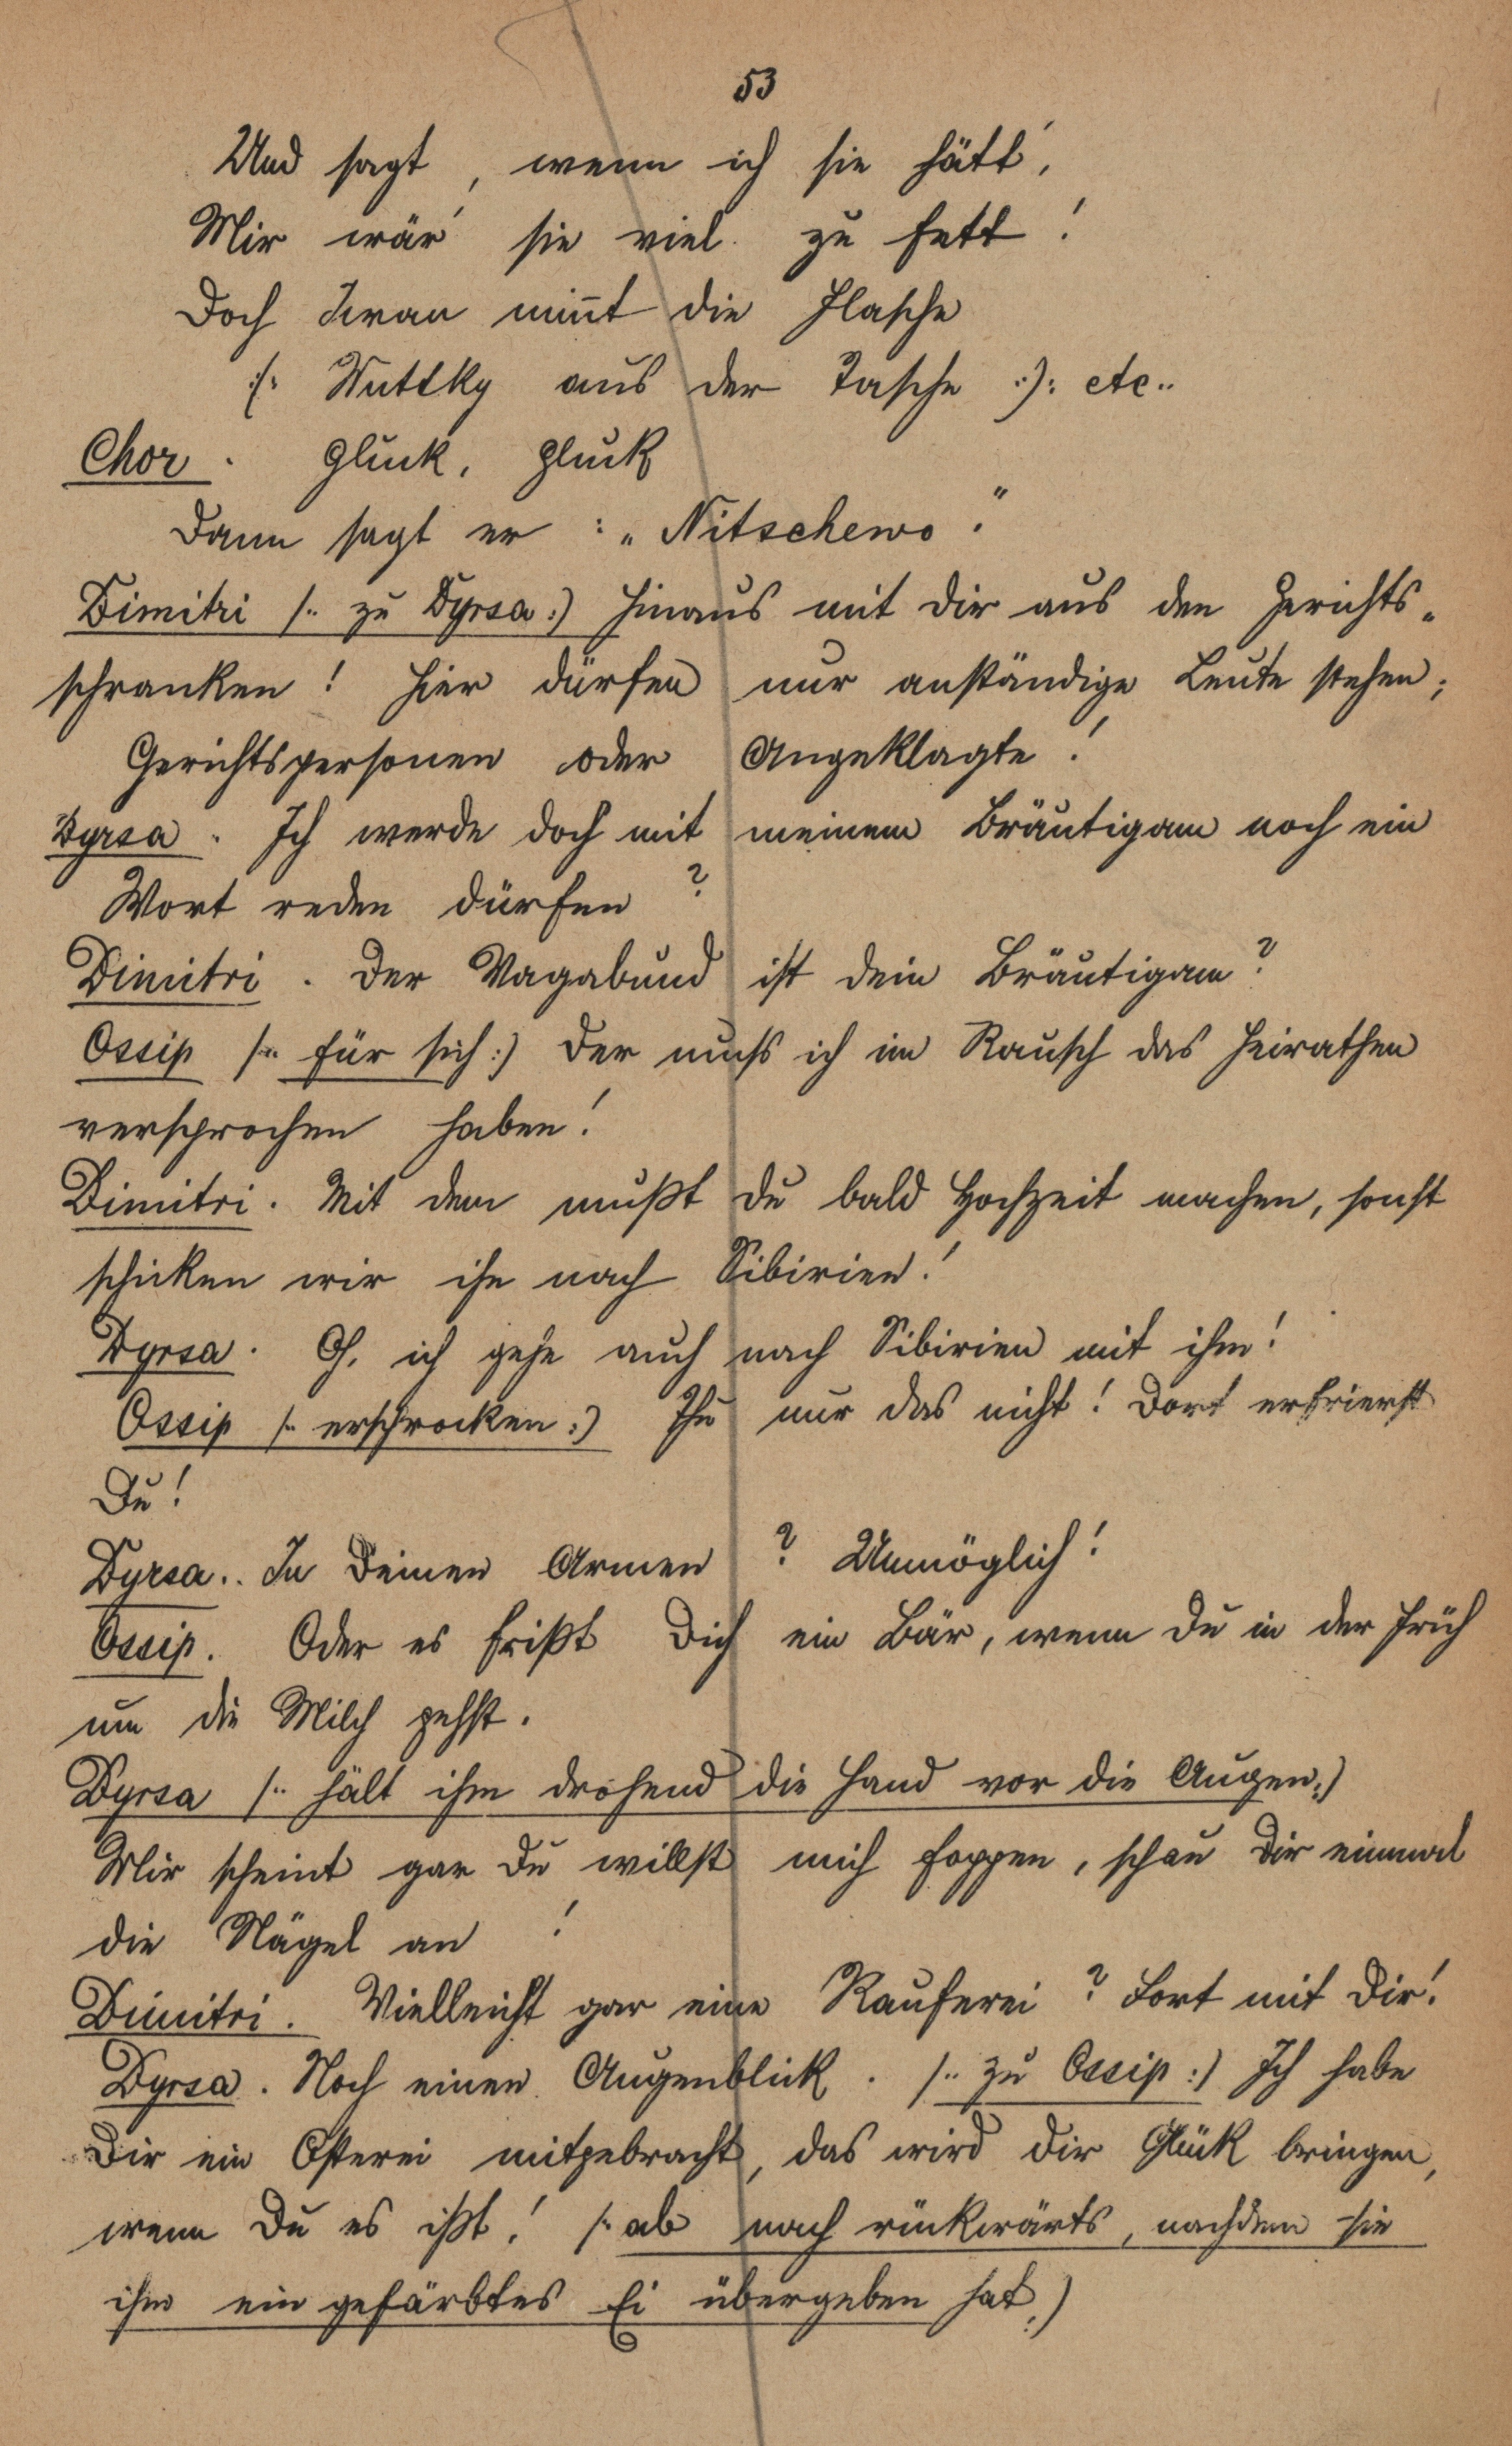 53
Und sagt, wenn ich sie hätt',
Mir wär' sie viel zu fett!
Doch Iwan nim̄t die Flasche
/: Wuttky aus der Tasche :/: etc..
Chor. Gluck, gluck
Dann sagt er: „Nitschewo."
Dimitri /: zu Dyrsa:) Hinaus mit dir aus den Gerichts-
schranken! Hier dürfen nur anständige Leute stehen;
Gerichtspersonen oder Angeklagte!
Dyrsa. Ich werde doch mit meinem Bräutigam noch ein
Wort reden dürfen?
Dimitri. Der Vagabund ist dein Bräutigam?
Ossip /: für sich:) Der muss ich im Rausch das Heirathen
versprochen haben!
Dimitri. Mit dem mußt du bald Hochzeit machen, sonst
schicken wir ihn nach Sibirien!
Dyrsa. Oh, ich gehe auch nach Sibirien mit ihm!
Ossip /: erschrocken:) Thu nur das nicht! Dort erfrierst
Du!
Dyrsa.. In Deinen Armen? Unmöglich!
Ossip. Oder es frißt Dich ein Bär, wenn Du in der Früh
um die Milch gehst.
Dyrsa /: hält ihm drohend die Hand vor die Augen:)
Mir scheint gar Du willst mich foppen, schau Dir einmal
die Nägel an!
Dimitri. Vielleicht gar eine Rauferei? Fort mit Dir!
Dyrsa. Noch einen Augenblick. /: zu Ossip:) Ich habe
Dir ein Osterei mitgebracht, das wird Dir Glück bringen,
wenn Du es ißt! /: ab nach rückwärts, nachdem sie
ihm ein gefärbtes Ei übergeben hat:)